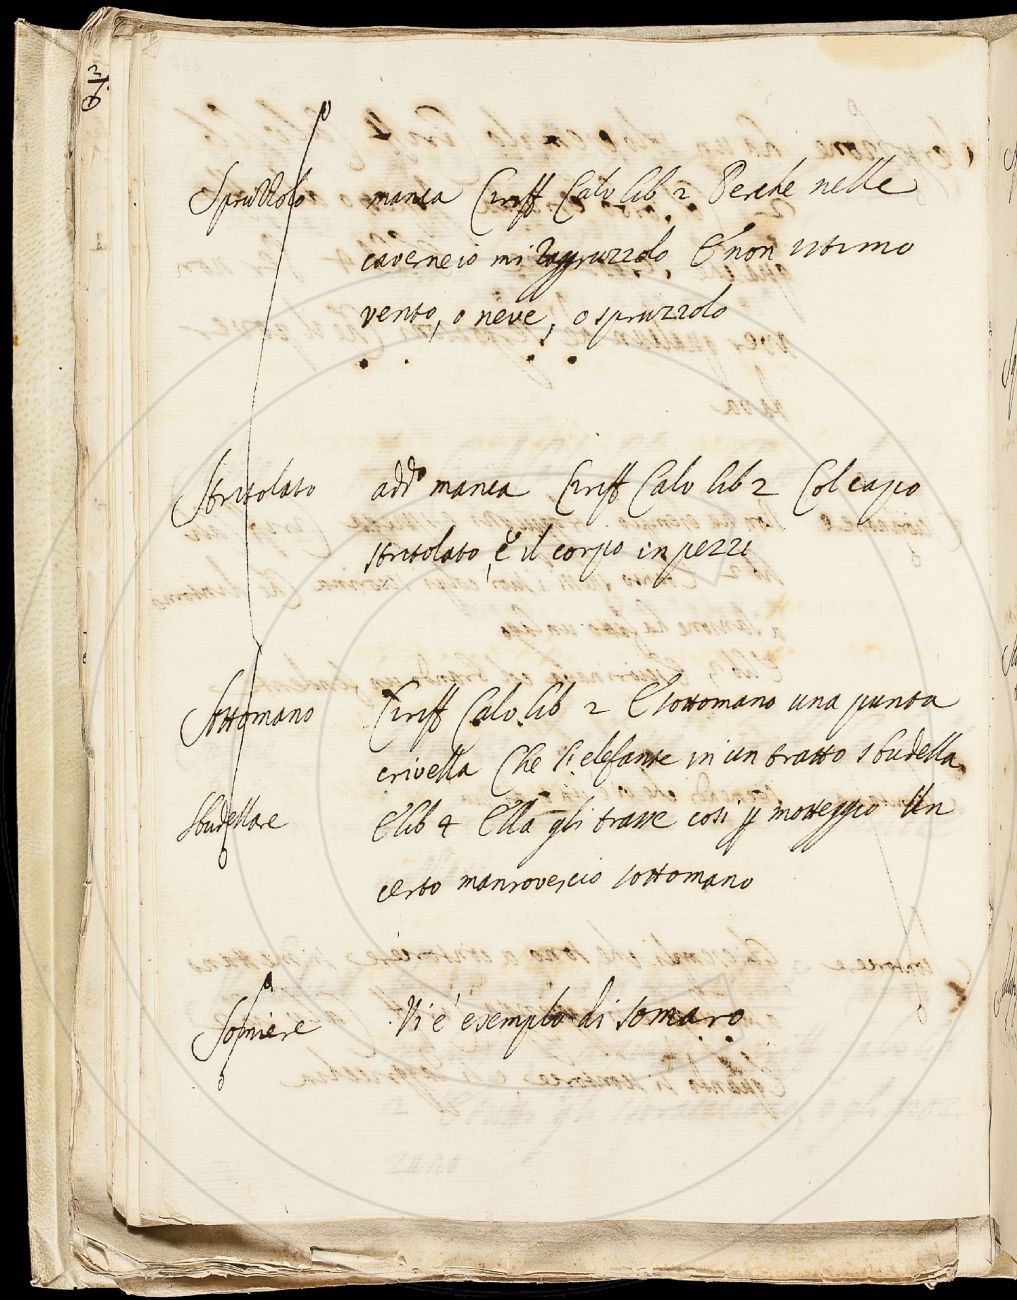 Spruzzolo manca Ciriff Calv lib 2 Perche nelle
caverne io mi raggruzzolo E non istimo
vento, o neve, o spruzzolo
Stritolato add.o manca Ciriff Calv lib 2 Col capo
stritolato, e il corpo in pezzi
Sottomano Ciriff Calv lib 2 E sottomano una punta
crivella Che li elefante in un tratto sbudella
Sbudellare E lib 4 Ella gli trasse così p motteggio Un
certo manrovescio sottomano
Somiere Vi è esemplo di somaro